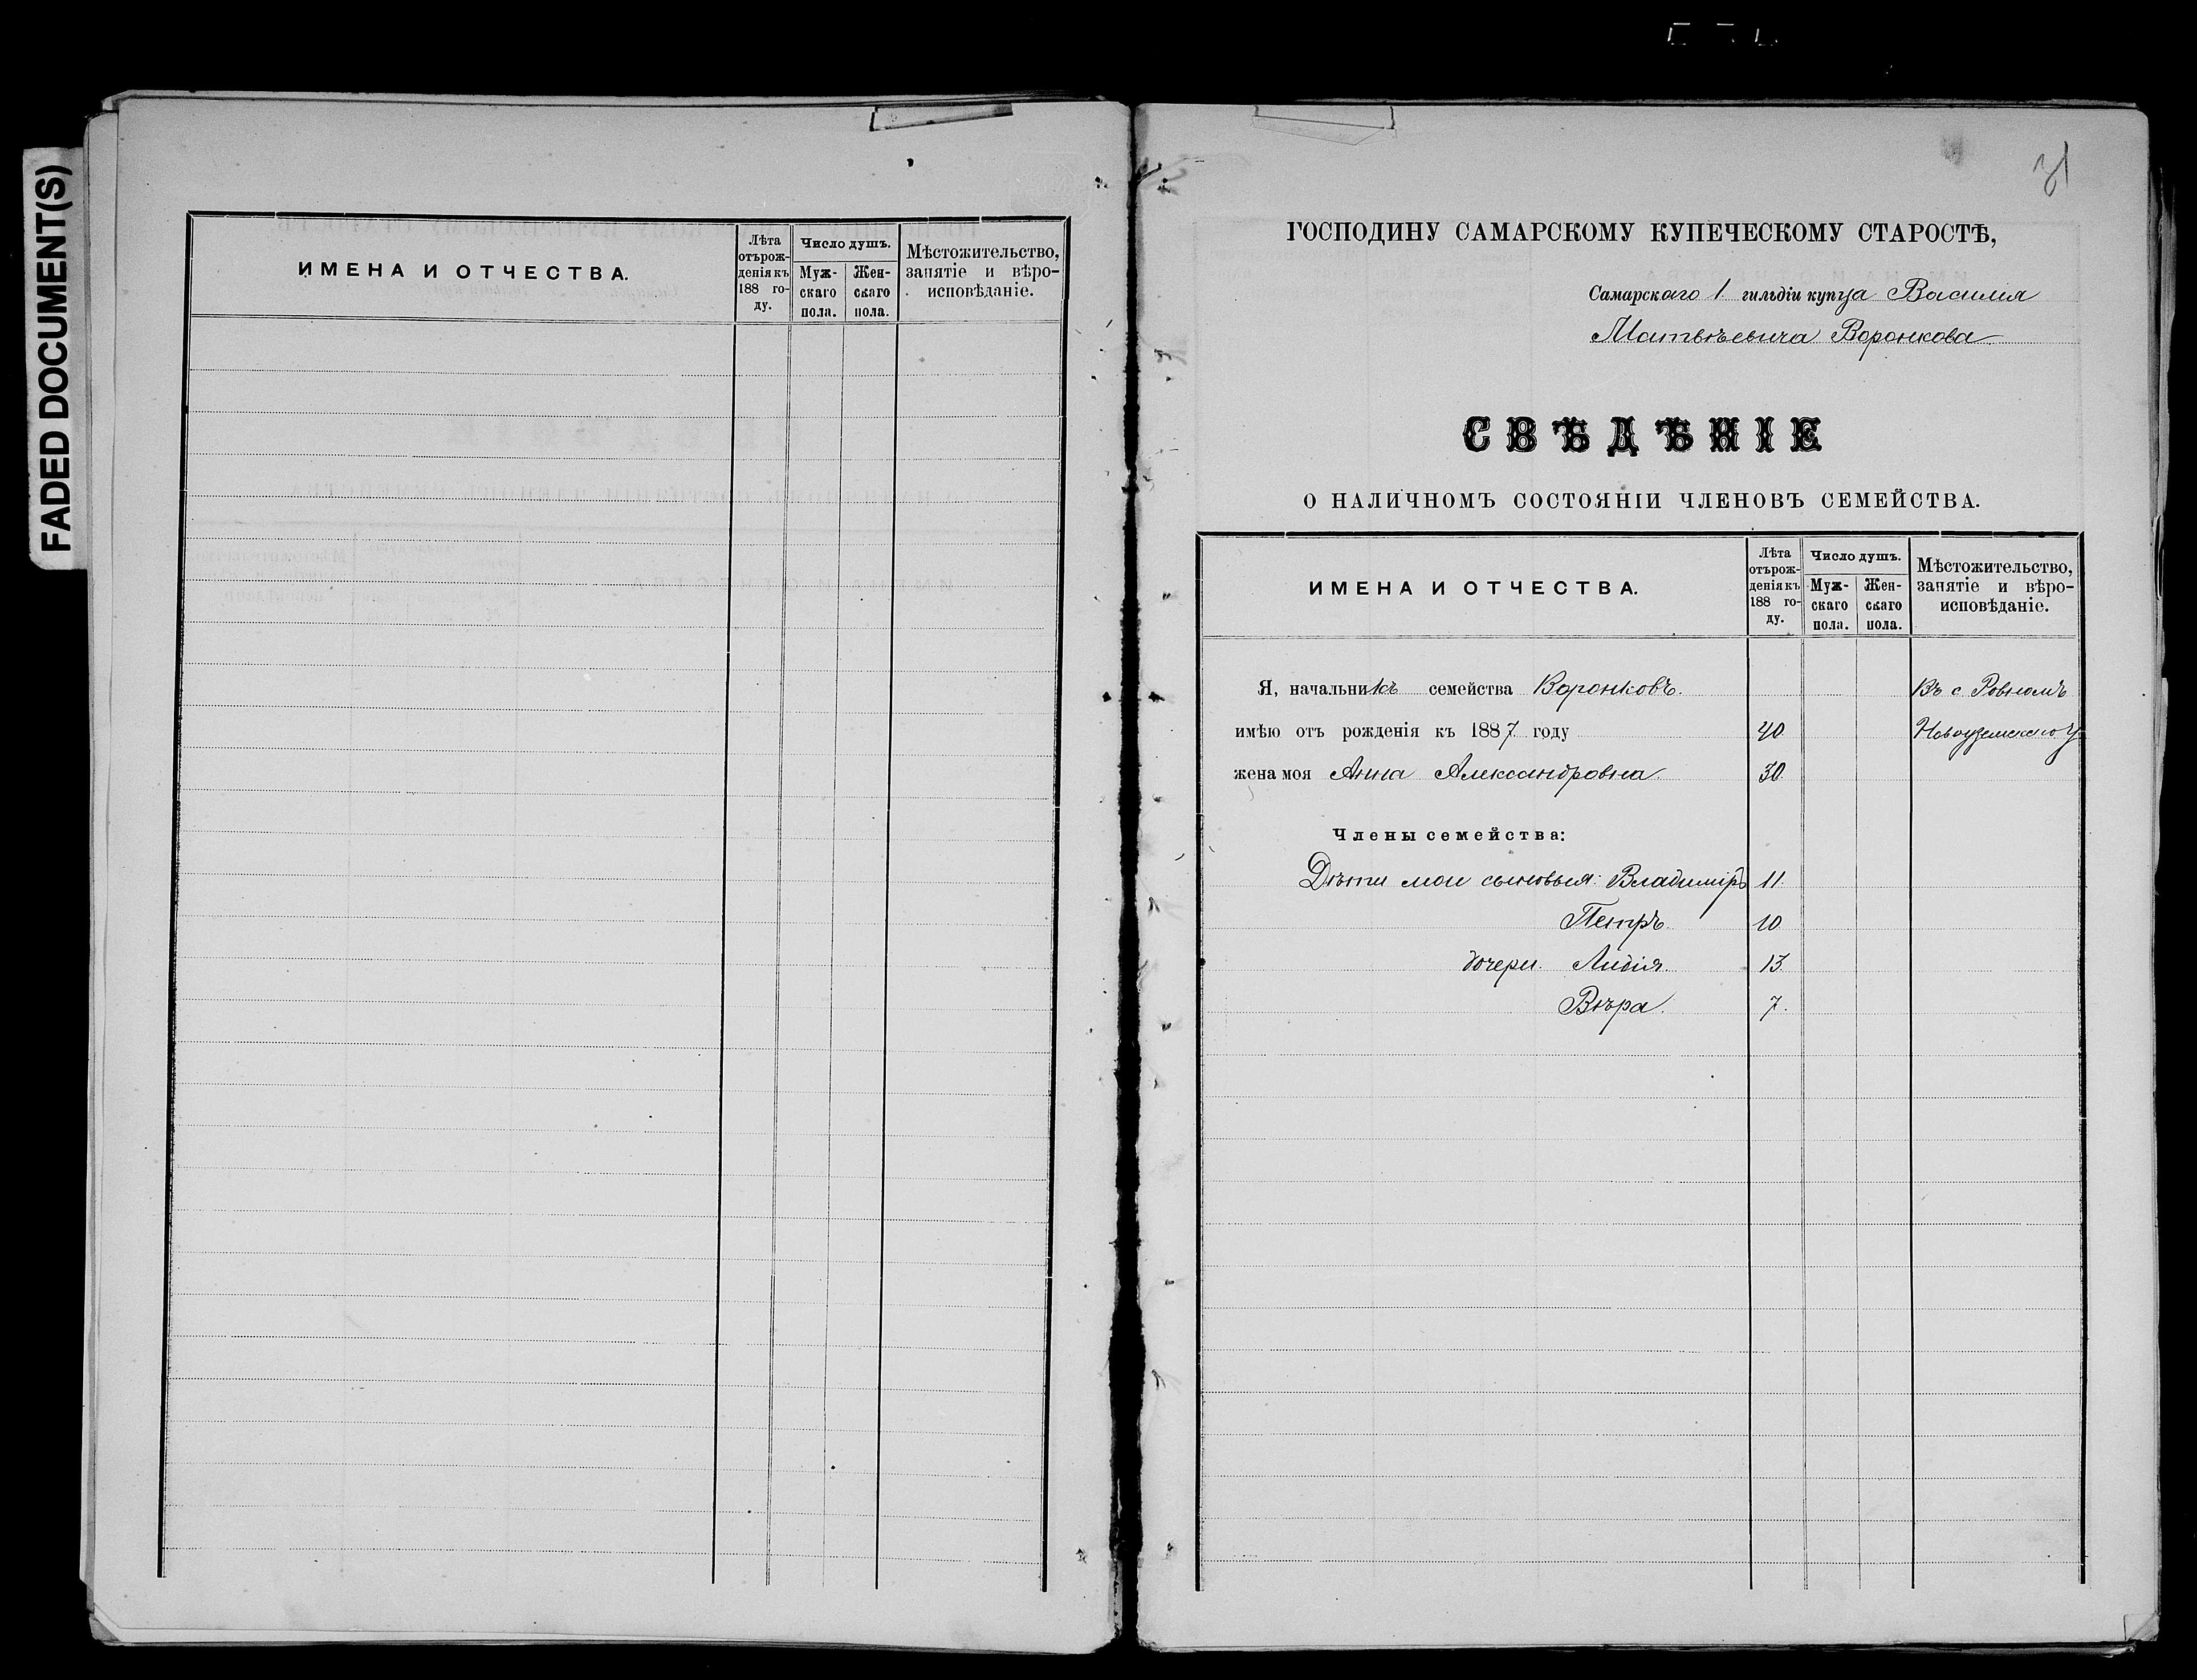 FADED DOCUMENT(S)
ИМЕНА И ОТЧЕСТВА.
Лѣта
отърож-
денія къ
188 го-
ду.
Число душъ.
Муж-
скаго
пола.
Жен-
скаго
пола.
Мѣстожительство,
занятіе и вѣро-
исповѣданіе.
31
ГОСПОДИНУ САМАРСКОМУ КУПЕЧЕСКОМУ СТАРОСТѢ,
Самарскаго 1 гильдіи купца Василия
Матвѣевича Воронкова
СВѢДѢНІЕ
О НАЛИЧНОМЪ СОСТОЯНІИ ЧЛЕНОВЪ СЕМЕЙСТВА.
ИМЕНА И ОТЧЕСТВА.
Лѣта
отърож-
денія къ
188 го-
ду.
Число душъ.
Муж-
скаго
пола.
Жен-
скаго
пола.
Мѣстожительство,
занятіе и вѣро-
исповѣданіе.
Я, начальникъ семейства Воронковъ. Въ с Ровномъ
имѣю отъ рожденія къ 1887 году 40 Новоузенскаго у
жена моя Анна Александровна. 30.
Члены семейства:
Дѣти мои сыновья: Владиміръ 11.
Петръ. 10
дочери. Лидія. 13.
Вѣра. 7.